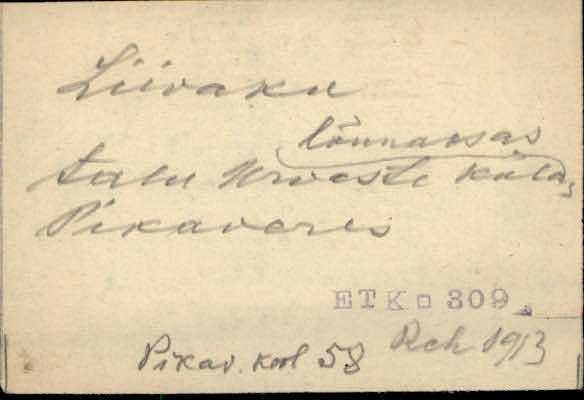 Liivaku
lõunaosas
talu Urvaste küla,
Pikaveres
ETK 309
Pikav. kool 58 Rch 1913